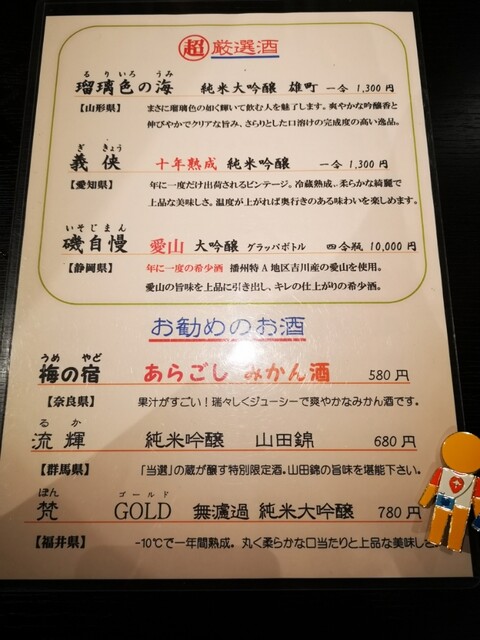 超 厳選酒
るりいろ うみ
瑠璃色の海 純米大吟醸 雄町 一合 1,300円
【山形県】 まさに瑠璃色の如く輝いて飲む人を魅了します。爽やかな吟醸香と
伸びやかでクリアな旨み、さらりとした口溶けの完成度の高い逸品。
ぎ きょう
義侠 十年熟成 純米吟醸 一合 1,300円
【愛知県】 年に一度だけ出荷されるビンテージ。冷蔵熟成、柔らかな綺麗で
上品な美味しさ。温度が上がれば奥行きのある味わいを楽しめます。
いそじまん
磯自慢 愛山 大吟醸 グラッパボトル 四合瓶 10,000円
【静岡県】 年に一度の希少酒 播州特A地区吉川産の愛山を使用。
愛山の旨味を上品に引き出し、キレの仕上がりの希少酒。
お勧めのお酒
うめ やど
梅の宿 あらごし みかん酒 580円
【奈良県】 果汁がすごい!瑞々しくジューシーで爽やかなみかん酒です。
るか
流輝 純米吟醸 山田錦 680円
【群馬県】 「当選」の蔵が醸す特別限定酒。山田錦の旨味を堪能下さい。
ぼん ゴールド
梵 GOLD 無濾過 純米大吟醸 780円
【福井県】 -10℃で一年間熟成。丸く柔らかな口当たりと上品な美味しさ